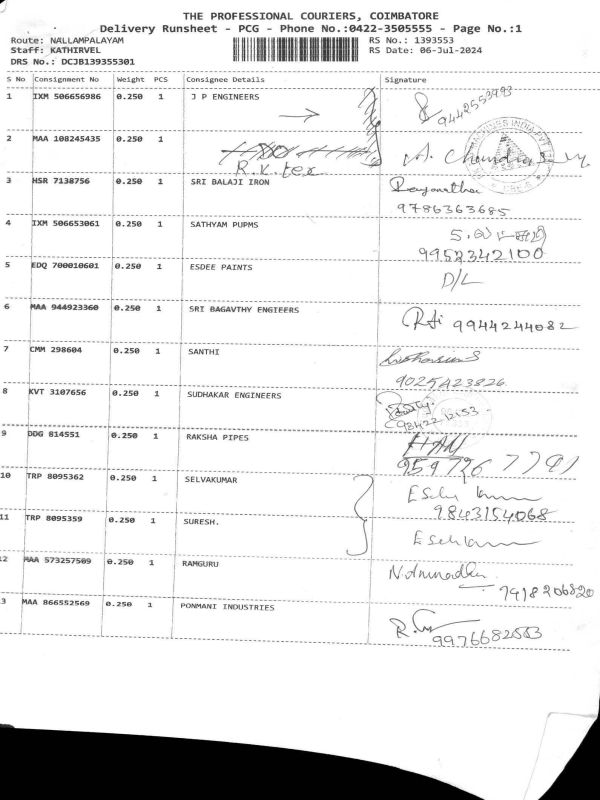 THE PROFESSIONAL COURIERS, COIMBATORE
Delivery Runsheet - PCG - Phone No.:0422-3505555 - Page No.:1
Route: NALLAMPALAYAM RS No.: 1393553
Staff: KATHIRVEL RS Date: 06-Jul-2024
DRS No.: DCJB139355301
S No Consignment No Weight PCS Consignee Details Signature
1 IXM 506656986 0.250 1 J P ENGINEERS
9442553993
2 MAA 108245435 0.250 1
R.K.tex
3 HSR 7138756 0.250 1 SRI BALAJI IRON
9786363685
4 IXM 506653061 0.250 1 SATHYAM PUPMS
9952342100
5 EDQ 700010601 0.250 1 ESDEE PAINTS D/L
6 MAA 944923360 0.250 1 SRI BAGAVTHY ENGIEERS 9944244082
7 CMM 298604 0.250 1 SANTHI
8 KVT 3107656 0.250 1 SUDHAKAR ENGINEERS
9 DDG 814551 0.250 1 RAKSHA PIPES
9597267791
10 TRP 8095362 0.250 1 SELVAKUMAR
9843154068
11 TRP 8095359 0.250 1 SURESH.
12 MAA 573257509 0.250 1 RAMGURU
7918206820
3 MAA 866552569 0.250 1 PONMANI INDUSTRIES